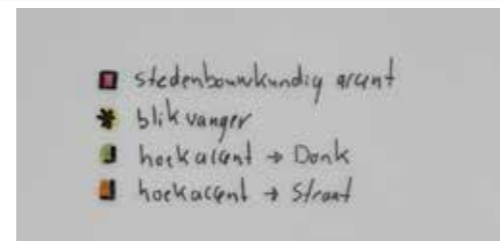 stedenbouwkundig accent
blikvanger
hoekaccent → Donk
hoekaccent → Straat